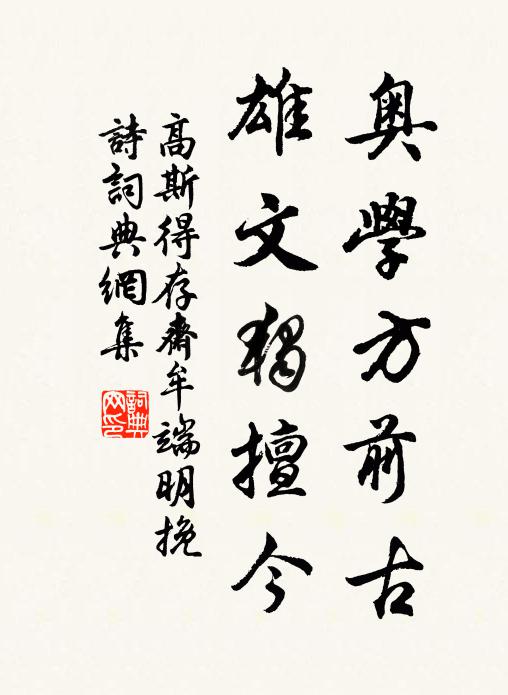 奧學方前古
雄文獨擅今
高斯得存齋牟端明挽
詩詞典網集
詞典網印